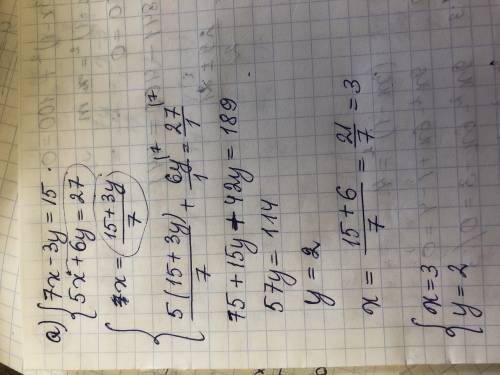 а) { 7x - 3y = 15
{ 5x + 6y = 27
{ x = (15 + 3y)/7
{ 5(15 + 3y)/7 + 6y/1 |7 = 27/1 |7
75 + 15y + 42y = 189
57y = 114
y = 2
x = (15 + 6)/7 = 21/7 = 3
{ x = 3
{ y = 2